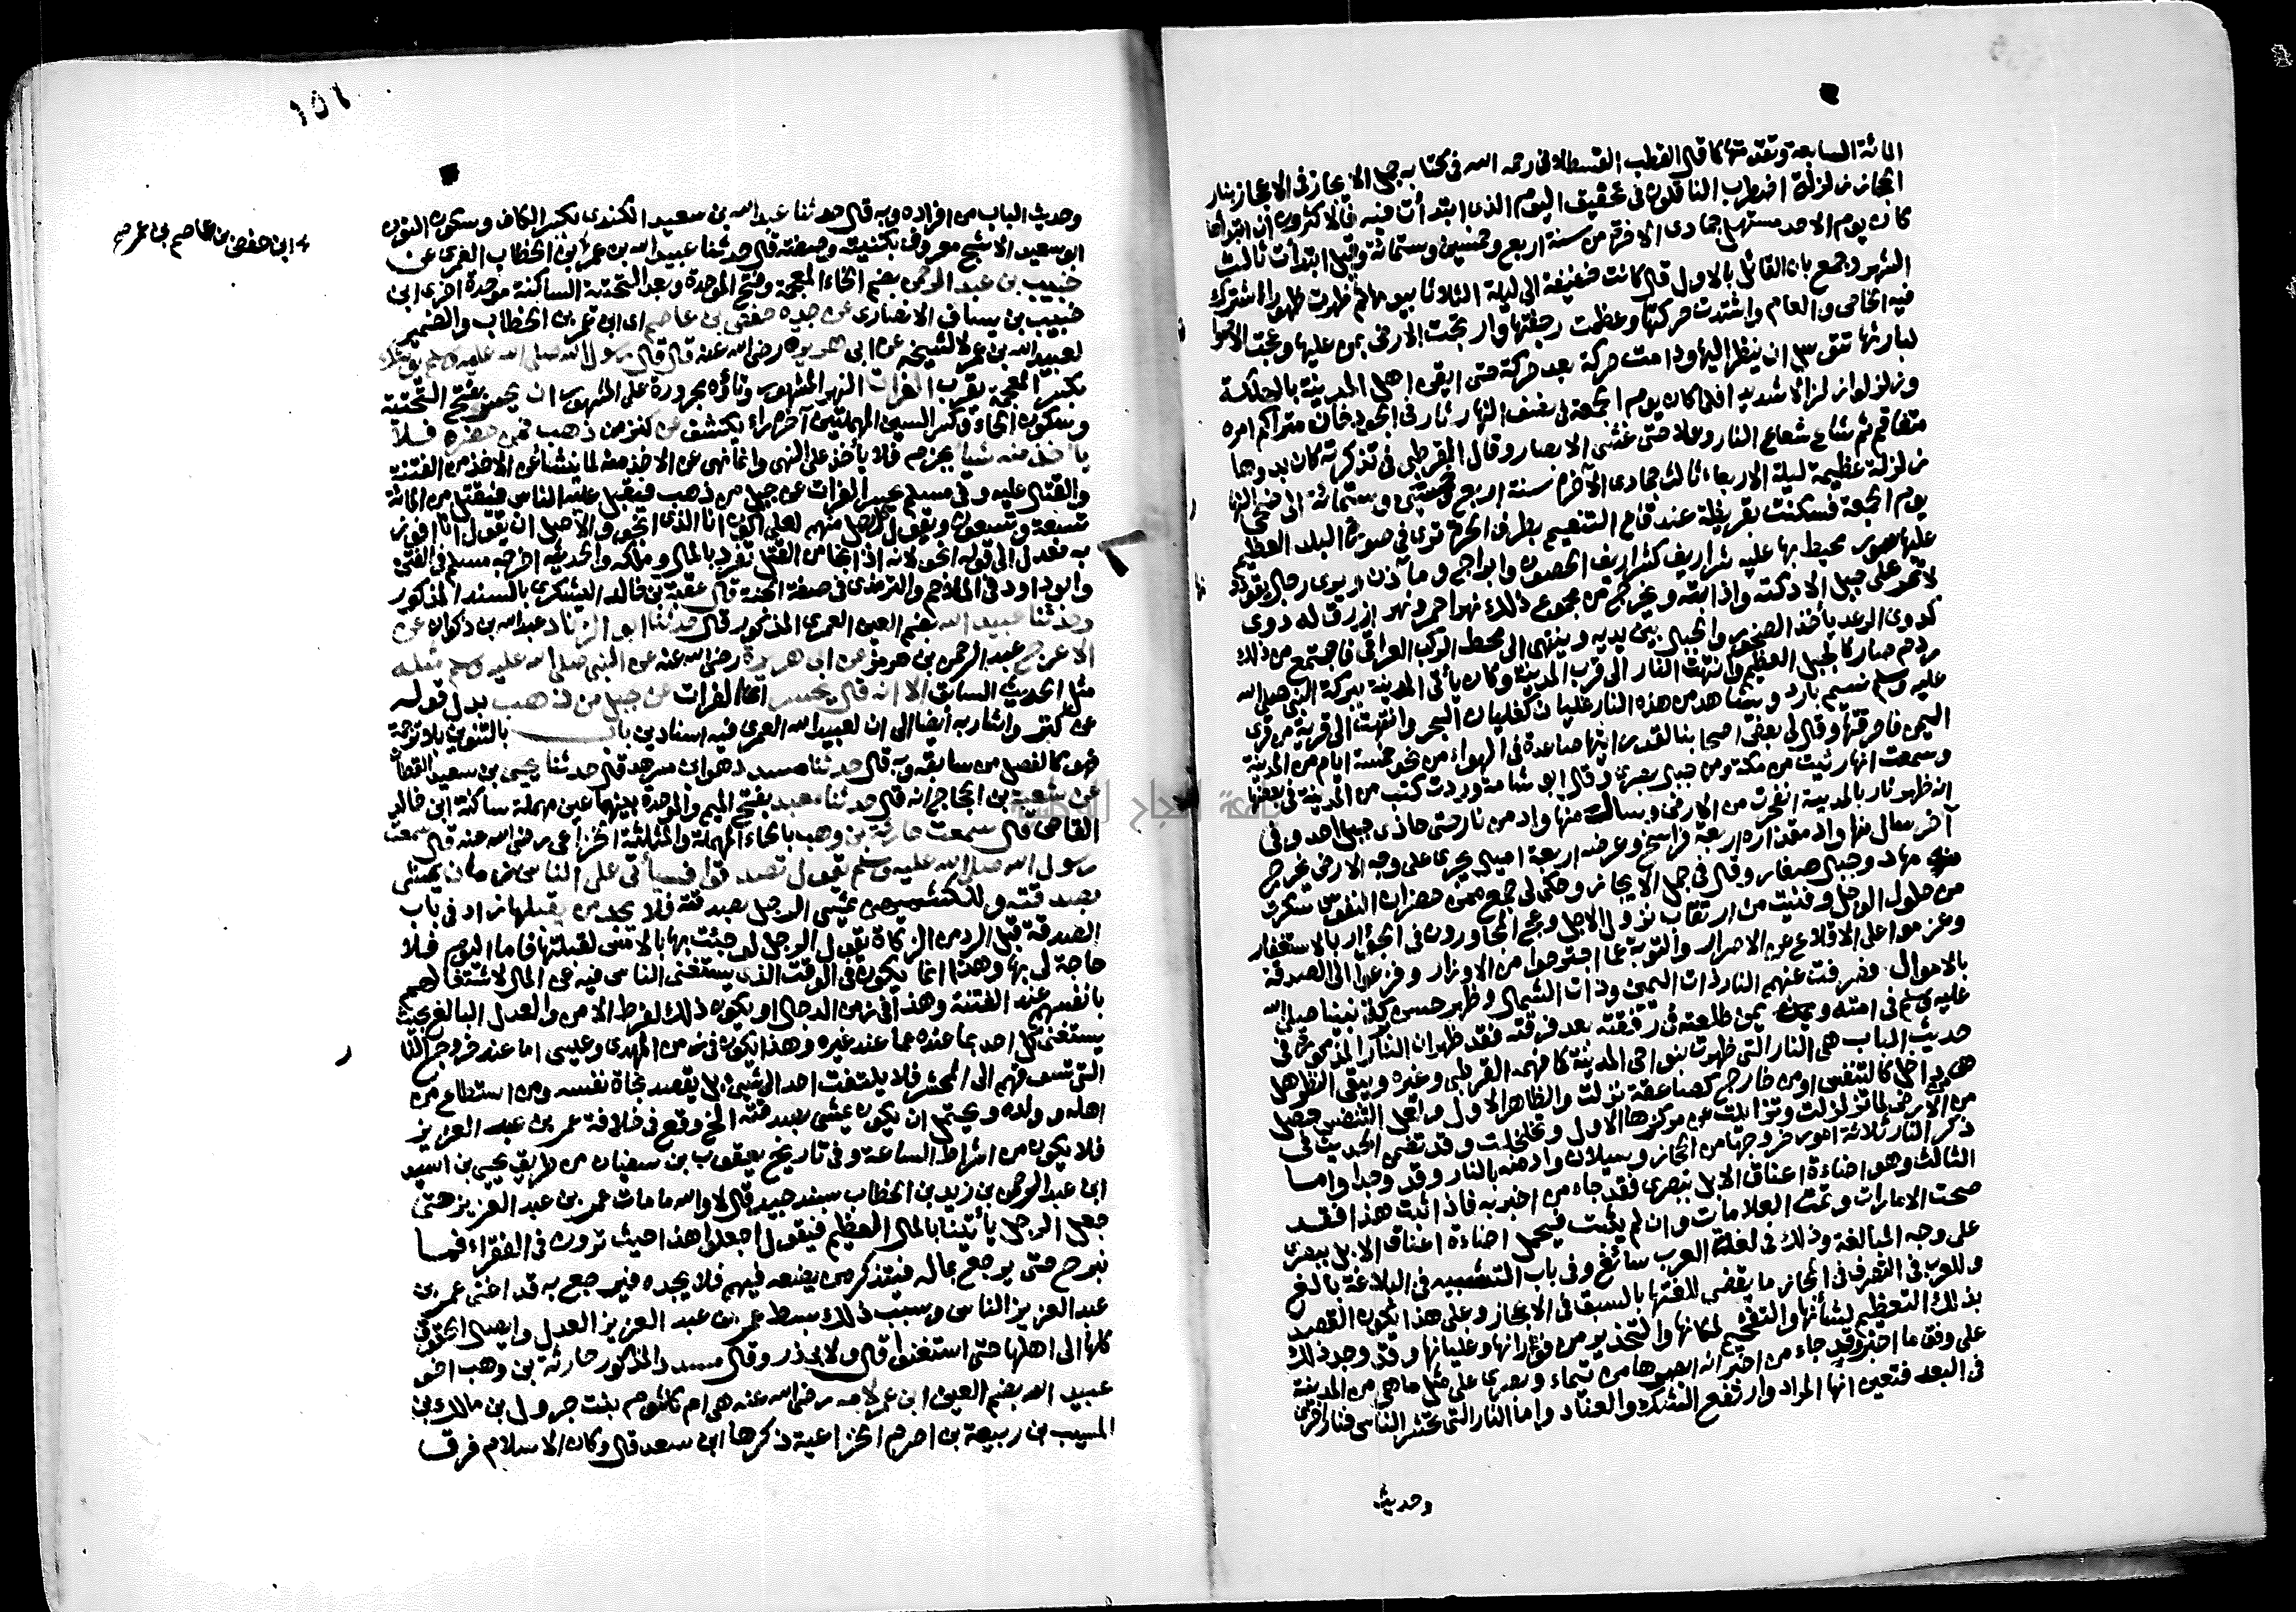 المائة السابعة وتقدمتها كما قال القطب القسطلاني رحمه الله في كتابه جمل الايجاز في الاعجاز بنار
الحجاز زلزلة اضطرب الناقلون في تحقيق اليوم الذي ابتدأت فيه فالاكثرون ان ابتداءها
كان يوم الاحد مستهل جمادى الآخرة من سنة اربع وخمسين وستمائة وقيل ابتدأت ثالث
الشهر وجمع بان القائل بالاول قال كانت خفيفة الى ليلة الثلاثا بيومها ثم ظهرت ظهورا اشترك
فيه الخاص والعام واشتدت حركتها وعظمت رجفتها وارتجت الارض بمن عليها وعجت الاصوات
لبارئها تتوسل ان ينظر اليها ودامت حركة بعد حركة حتى ايقن اهل المدينة بالهلكة
وزلزلوا زلزالا شديدا فلما كان يوم الجمعة في نصف النهار ثار في الجو دخان متراكم امره
متفاقم ثم شاع شعاع النار وعلا حتى غشي الابصار وقال القرطبي في تذكرته كان بدوها
زلزلة عظيمة ليلة الاربعاء ثالث جمادى الآخرة سنة اربع وخمسين وستمائة الى ضحى النهار
يوم الجمعة فسكنت بقريظة عند قاع التنعيم بطرف الحرة ترى في صورة البلد العظيم
عليها سور محيط بها عليه شراريف كشراريف الحصون وابراج ومآذن ويرى رجال يقودونها
لا تمر على جبل الا دكته واذابته ويخرج من مجموع ذلك نهر احمر ونهر ازرق له دوي
كدوي الرعد يأخذ الصخور والجبال بين يديه وينتهي الى محط الركب العراقي فاجتمع من ذلك
ردم صار كالجبل العظيم وانتهت النار الى قرب المدينة وكان يأتي المدينة ببركة النبي صلى الله
عليه وسلم نسيم بارد ويشاهد من هذه النار غليان كغليان البحر وانتهت الى قرية من قرى
اليمن فاحرقتها وقال لي بعض اصحابنا لقد رايتها صاعدة في الهواء من نحو خمسة ايام من المدينة
وسمعت انها رئيت من مكة ومن جبال بصرى وقال ابو شامة وردت كتب من المدينة في بعضها
انه ظهر نار بالمدينة انفجرت من الارض وسالت منها واد من نار حتى حاذى جبل احد وفي
آخر سال منها واد مقداره اربعة فراسخ وعرضه اربعة اميال يجري على وجه الارض يخرج
منه مهاد وجبال صغار وقال في جمل الايجاز وحكى لي جمع ممن حضر ان النفوس سكرت
من حلول الوجل وفنيت من ارتقاب نزول الاجل وعج المجاورون في الجؤار بالاستغفار
وعزموا على الاقلاع عن الاصرار والتوبة عما اجترحوا من الاوزار وفزعوا الى الصدقة
بالاموال فصرفت عنهم النار ذات اليمين وذات الشمال وظهر حسن بركة نبينا صلى الله
عليه وسلم في امته ويمن طلعته في رفقته بعد فرقته فقد ظهر ان النار المذكورة في
حديث الباب هي النار التي ظهرت بنواحي المدينة كما فهمه القرطبي وغيره ويبقى النظر هل
هي من داخل كالتنفس او من خارج كصاعقة نزلت والظاهر الاول ولعل التنفس حصل
من الارض لما تزلزلت وتزايلت عن مركزها الاول وتخلخلت وقد تضمن الحديث في
ذكر النار ثلاثة امور خروجها من الحجاز وسيلان واد منه بالنار وقد وجدا واما
الثالث وهو اضاءة اعناق الابل ببصرى فقد جاء من اخبر به فاذا ثبت هذا فقد
صحت الامارات وتمت العلامات وان لم يثبت فيحمل اضاءة اعناق الابل ببصرى
على وجه المبالغة وذلك في لغة العرب سائغ وفي باب التشبيه في البلاغة بالغ
وللعرب في التصرف في المجاز ما يقضي للغتها بالسبق في الاعجاز وعلى هذا يكون القصد
بذلك التعظيم لشأنها والتفخيم لمكانها والتحذير من فورانها وغليانها وقد وجد ذلك
على وفق ما اخبر وقد جاء من اخبر انه ابصرها من تيماء وبصرى على مثل ما هي من المدينة
في البعد فتعين انها المراد وارتفع الشك والعناد واما النار التي تحشر الناس فنار اخرى
وحديث
١٥١
وحديث الباب من افراده وبه قال حدثنا عبد الله بن سعيد الكندي بكسر الكاف وسكون النون
ابو سعيد الاشج معروف بكنيته وصفته قال حدثنا عبيد الله بن عمر بن الخطاب العمري عن
ابن حفص بن عاصم بن عمر صح
خبيب بن عبد الرحمن بضم الخاء المعجمة وفتح الموحدة وبعد التحتية الساكنة موحدة اخرى ابن
خبيب بن يساف الانصاري عن جده حفص بن عاصم اي ابن عمر بن الخطاب والضمير
لعبيد الله بن عمر لا لشيخه عن ابي هريرة رضي الله عنه قال قال رسول الله صلى الله عليه وسلم يوشك
بكسر المعجمة يقرب الفرات النهر المشهور وتاؤه مجرورة على المشهور ان يحسر بفتح التحتية
وسكون الحاء وكسر السين المهملتين آخره راء يكشف عن كنز من ذهب فمن حضره فلا
يأخذ منه شيئا بجزم فلا يأخذ على النهي وانما نهى عن الاخذ منه لما ينشأ عن الاخذ من الفتنة
والقتال عليه وفي مسلم يحسر الفرات عن جبل من ذهب فيقتتل عليه الناس فيقتل من المائة
تسعة وتسعون ويقول كل رجل منهم لعلي اكون انا الذي انجو والاصل ان يقول انا افوز
به فعدل الى قوله انجو لانه اذا نجا من القتل تفرد بالمال وملكه والحديث اخرجه مسلم في الفتن
وابو داود في الملاحم والترمذي في صفة الجنة قال عقبة بن خالد اليشكري بالسند المذكور
وحدثنا عبيد الله بضم العين العمري المذكور قال حدثنا ابو الزناد عبد الله بن ذكوان عن
الاعرج عبد الرحمن بن هرمز عن ابي هريرة رضي الله عنه عن النبي صلى الله عليه وسلم مثله
مثل الحديث السابق الا انه قال يحسر اي الفرات عن جبل من ذهب بدل قوله
عن كنز واشار به أيضا الى ان لعبيد الله العمري فيه اسنادين باب بالتنوين بلا ترجمة
فهو كالفصل من سابقه وبه قال حدثنا مسدد هو ابن مسرهد قال حدثنا يحيى بن سعيد القطان
عن شعبة بن الحجاج انه قال حدثنا معبد بفتح الميم والموحدة بينهما عين مهملة ساكنة ابن خالد
القاص قال سمعت حارثة بن وهب بالحاء المهملة والمثلثة الخزاعي رضي الله عنه قال سمعت
رسول الله صلى الله عليه وسلم يقول تصدقوا فسيأتي على الناس زمان يمشي
بصدقته يمشي الرجل بصدقته فلا يجد من يقبلها زاد في باب
الصدقة قبل الرد من الزكاة يقول الرجل لو جئت بها بالامس لقبلتها فاما اليوم فلا
حاجة لي بها وهذا انما يكون في الوقت الذي يستغني الناس فيه عن المال لاشتغالهم
بانفسهم عند الفتنة وهذا في زمن الدجال او يكون ذلك لفرط الامن والعدل البالغ بحيث
يستغني كل احد بما عنده عما عند غيره وهذا يكون في زمن المهدي وعيسى اما عند خروج النار
التي تسوقهم الى المحشر فلا يلتفت احد الى شيء بل يقصد نجاة نفسه ومن استطاع من
اهله وولده ويحتمل ان يكون يمشي بصدقته الخ وقع في خلافة عمر بن عبد العزيز
فلا يكون من اشراط الساعة وفي تاريخ يعقوب بن سفيان من طريق يحيى بن اسيد
ابن عبد الرحمن بن زيد بن الخطاب بسند جيد قال لا والله ما مات عمر بن عبد العزيز حتى
جعل الرجل يأتينا بالمال العظيم فيقول اجعلوا هذا حيث ترون في الفقراء فما
نبرح حتى يرجع بماله فنتذكر من يضعه فيهم فلا يجده فيرجع به قد اغنى عمر بن
عبد العزيز الناس وسبب ذلك بسط عمر بن عبد العزيز العدل وايصال الحقوق
كلها الى اهلها حتى استغنوا قال ولابي ذر وقال مسدد المذكور حارثة بن وهب اخو
عبيد الله بضم العين ابن عمر لامه رضي الله عنه هي ام كلثوم بنت جرول بن مالك بن
المسيب بن ربيعة بن اصرم الخزاعية ذكرها ابن سعد قال وكان الاسلام فرق